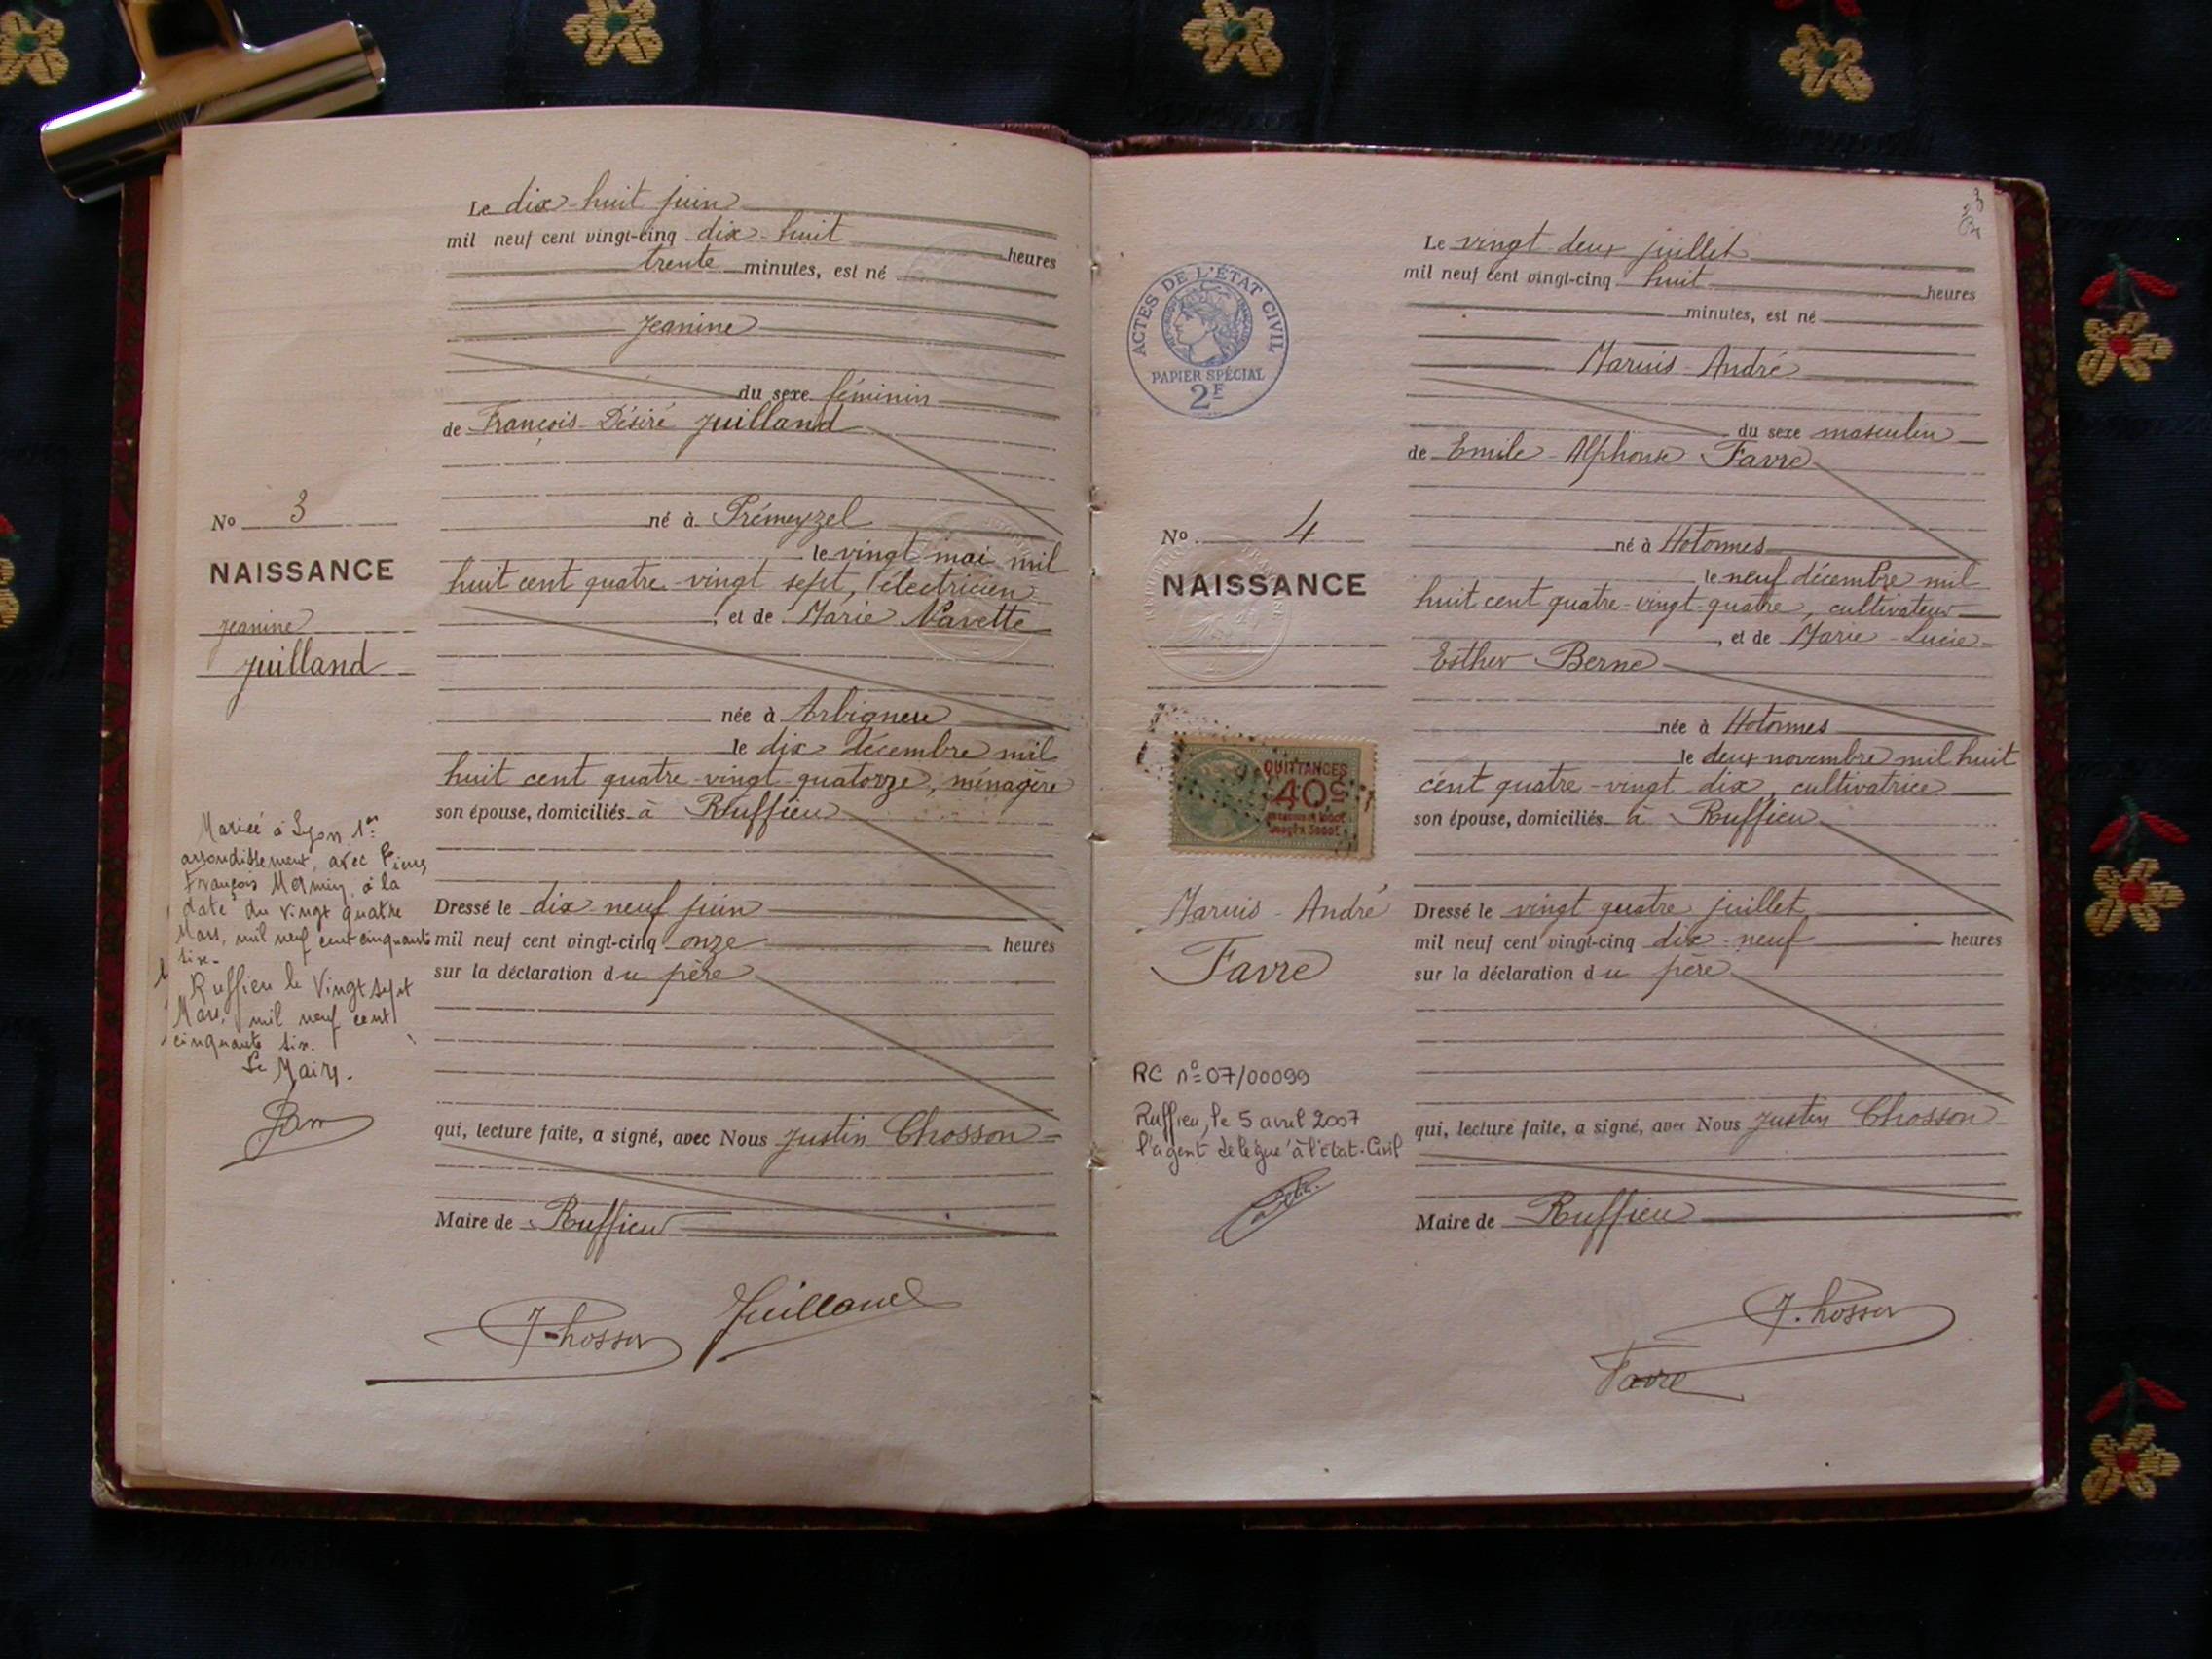 Le dix-huit juin
mil neuf cent vingt-cinq dix-huit heures
trente minutes, est né
Jeanine
du sexe féminin
de François-Désiré Juilland
né à Prémeyzel
le vingt mai mil
huit cent quatre-vingt sept, électricien
, et de Marie Navette
née à Arbignieu
le dix décembre mil
huit cent quatre-vingt-quatorze, ménagère
son épouse, domiciliés à Ruffieu
Dressé le dix-neuf juin
mil neuf cent vingt-cinq onze heures
sur la déclaration du père
qui, lecture faite, a signé, avec Nous Justin Chosson
Maire de Ruffieu
J. Chosson Juilland
No 3
NAISSANCE
Jeanine
Juilland
Mariée à Lyon 1er
arrondissement, avec
François Mermin, à la
date du vingt quatre
Mars, mil neuf cent cinquante
six.
Ruffieu le Vingt sept
Mars, mil neuf cent
cinquante six.
Le Maire.
3
Le vingt-deux juillet
mil neuf cent vingt-cinq huit heures
minutes, est né
Marius-André
du sexe masculin
de Emile-Alphonse Favre
né à Hotonnes
le neuf décembre mil
huit cent quatre-vingt-quatre, cultivateur
, et de Marie-Lucie-
Esther Berne
née à Hotonnes
le deux novembre mil huit
cent quatre-vingt-dix, cultivatrice
son épouse, domiciliés à Ruffieu
Dressé le vingt-quatre juillet
mil neuf cent vingt-cinq dix-neuf heures
sur la déclaration du père
qui, lecture faite, a signé, avec Nous Justin Chosson
Maire de Ruffieu
J. Chosson
Favre
ACTES DE L'ÉTAT CIVIL
PAPIER SPÉCIAL
2F
No 4
NAISSANCE
QUITTANCES
40c
Marius-André
Favre
RC n° 07/00099
Ruffieu, le 5 avril 2007
l'agent délégué à l'état-Civil